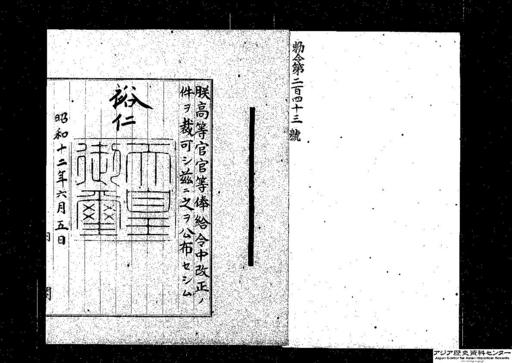 勅令第二百四十三號
朕高等官官等俸給令中改正ノ
件ヲ裁可シ茲ニ之ヲ公布セシム
裕仁
天皇
御璽
昭和十二年六月五日
内閣
アジア歴史資料センター
Japan Center for Asian Historical Records